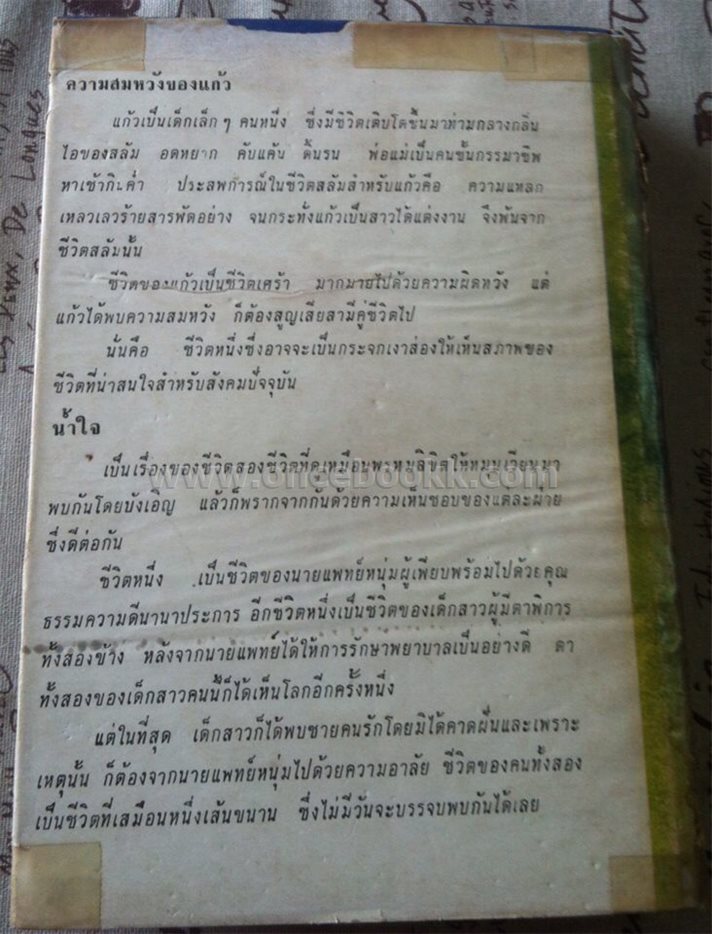 ความสมหวังของแก้ว
แก้วเป็นเด็กเล็ก ๆ คนหนึ่ง ซึ่งมีชีวิตเติบโตขึ้นมาท่ามกลางกลิ่น
ไอของสลัม อดหยาก คับแค้น ดิ้นรน พ่อแม่เป็นคนชั้นกรรมาชีพ
หาเช้ากินค่ำ ประสพการณ์ในชีวิตสลัมสำหรับแก้วคือ ความแหลก
เหลวเลวร้ายสารพัดอย่าง จนกระทั่งแก้วเป็นสาวได้แต่งงาน จึงพ้นจาก
ชีวิตสลัมนั้น
ชีวิตของแก้วเป็นชีวิตเศร้า มากมายไปด้วยความผิดหวัง แต่
แก้วได้พบความสมหวัง ก็ต้องสูญเสียสามีคู่ชีวิตไป
นั่นคือ ชีวิตหนึ่งซึ่งอาจจะเป็นกระจกเงาส่องให้เห็นสภาพของ
ชีวิตที่น่าสนใจสำหรับสังคมปัจจุบัน
น้ำใจ
เป็นเรื่องของชีวิตสองชีวิตที่ดูเหมือนพระพรหมลิขิตให้หมุนเวียนมา
พบกันโดยบังเอิญ แล้วก็พรากจากกันด้วยความเห็นชอบของแต่ละฝ่าย
ซึ่งดีต่อกัน
ชีวิตหนึ่ง เป็นชีวิตของนายแพทย์หนุ่มผู้เพียบพร้อมไปด้วยคุณ
ธรรมความดีนานาประการ อีกชีวิตหนึ่งเป็นชีวิตของเด็กสาวผู้มีตาพิการ
ทั้งสองข้าง หลังจากนายแพทย์ได้ให้การรักษาพยาบาลเป็นอย่างดี ตา
ทั้งสองของเด็กสาวคนนี้ก็ได้เห็นโลกอีกครั้งหนึ่ง
แต่ในที่สุด เด็กสาวก็ได้พบชายคนรักโดยมิได้คาดฝันและเพราะ
เหตุนั้น ก็ต้องจากนายแพทย์หนุ่มไปด้วยความอาลัย ชีวิตของคนทั้งสอง
เป็นชีวิตที่เสมือนหนึ่งเส้นขนาน ซึ่งไม่มีวันจะบรรจบพบกันได้เลย
www.oncebookk.com